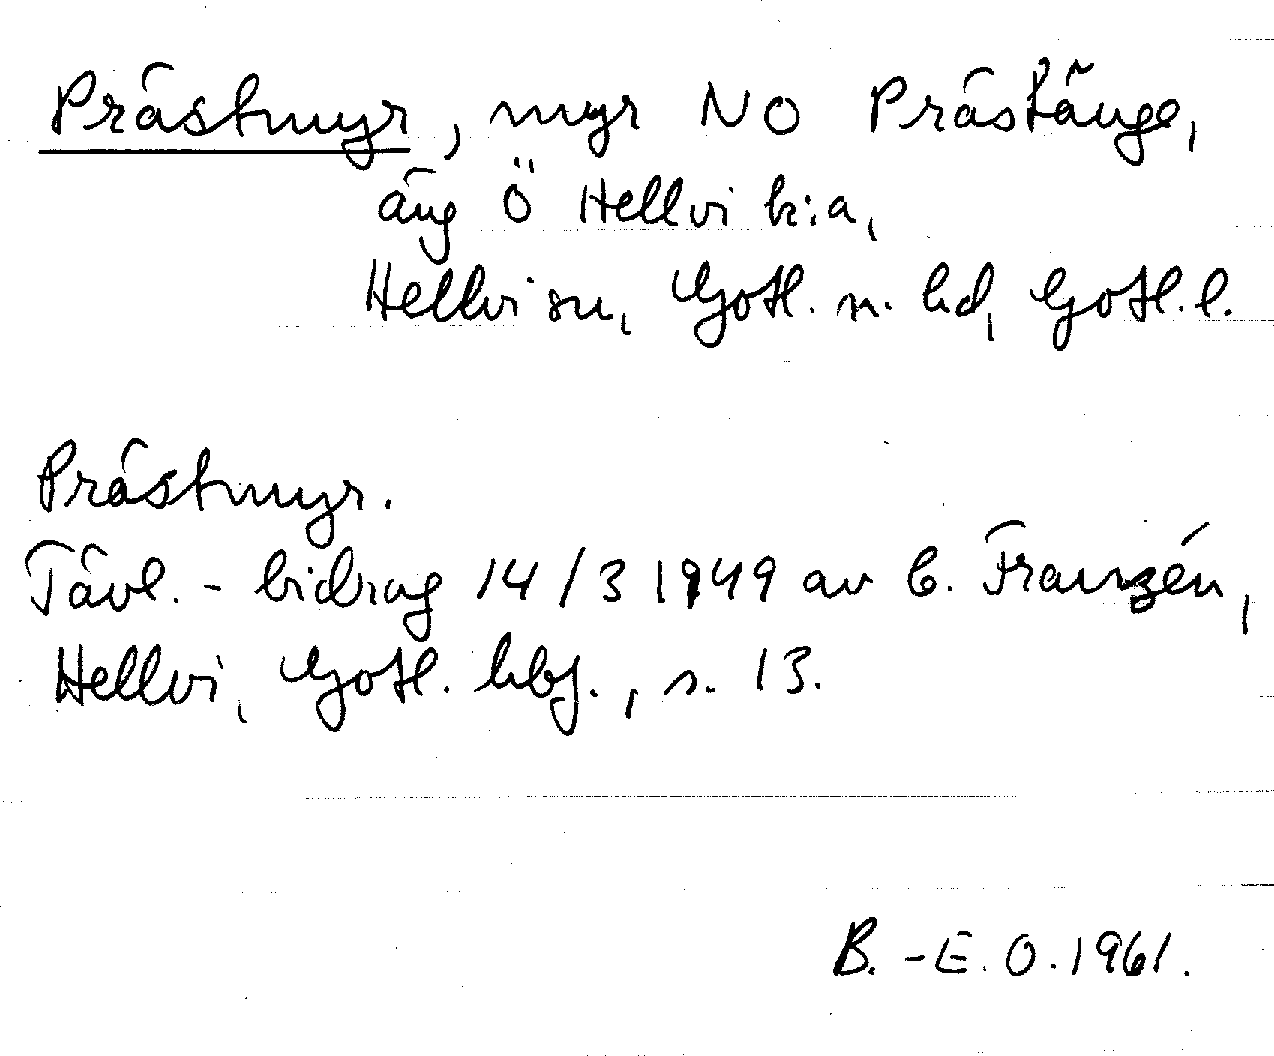 Prästmyr, myr NO Prästänge,
äng Ö Hellvi k:a,
Hellvi sn, Gotl. n. hd, Gotl. l.
Prästmyr.
Tävl.-bidrag 14/3 1949 av C. Franzén,
Hellvi, Gotl. hbf., s. 13.
B.-E. O. 1961.